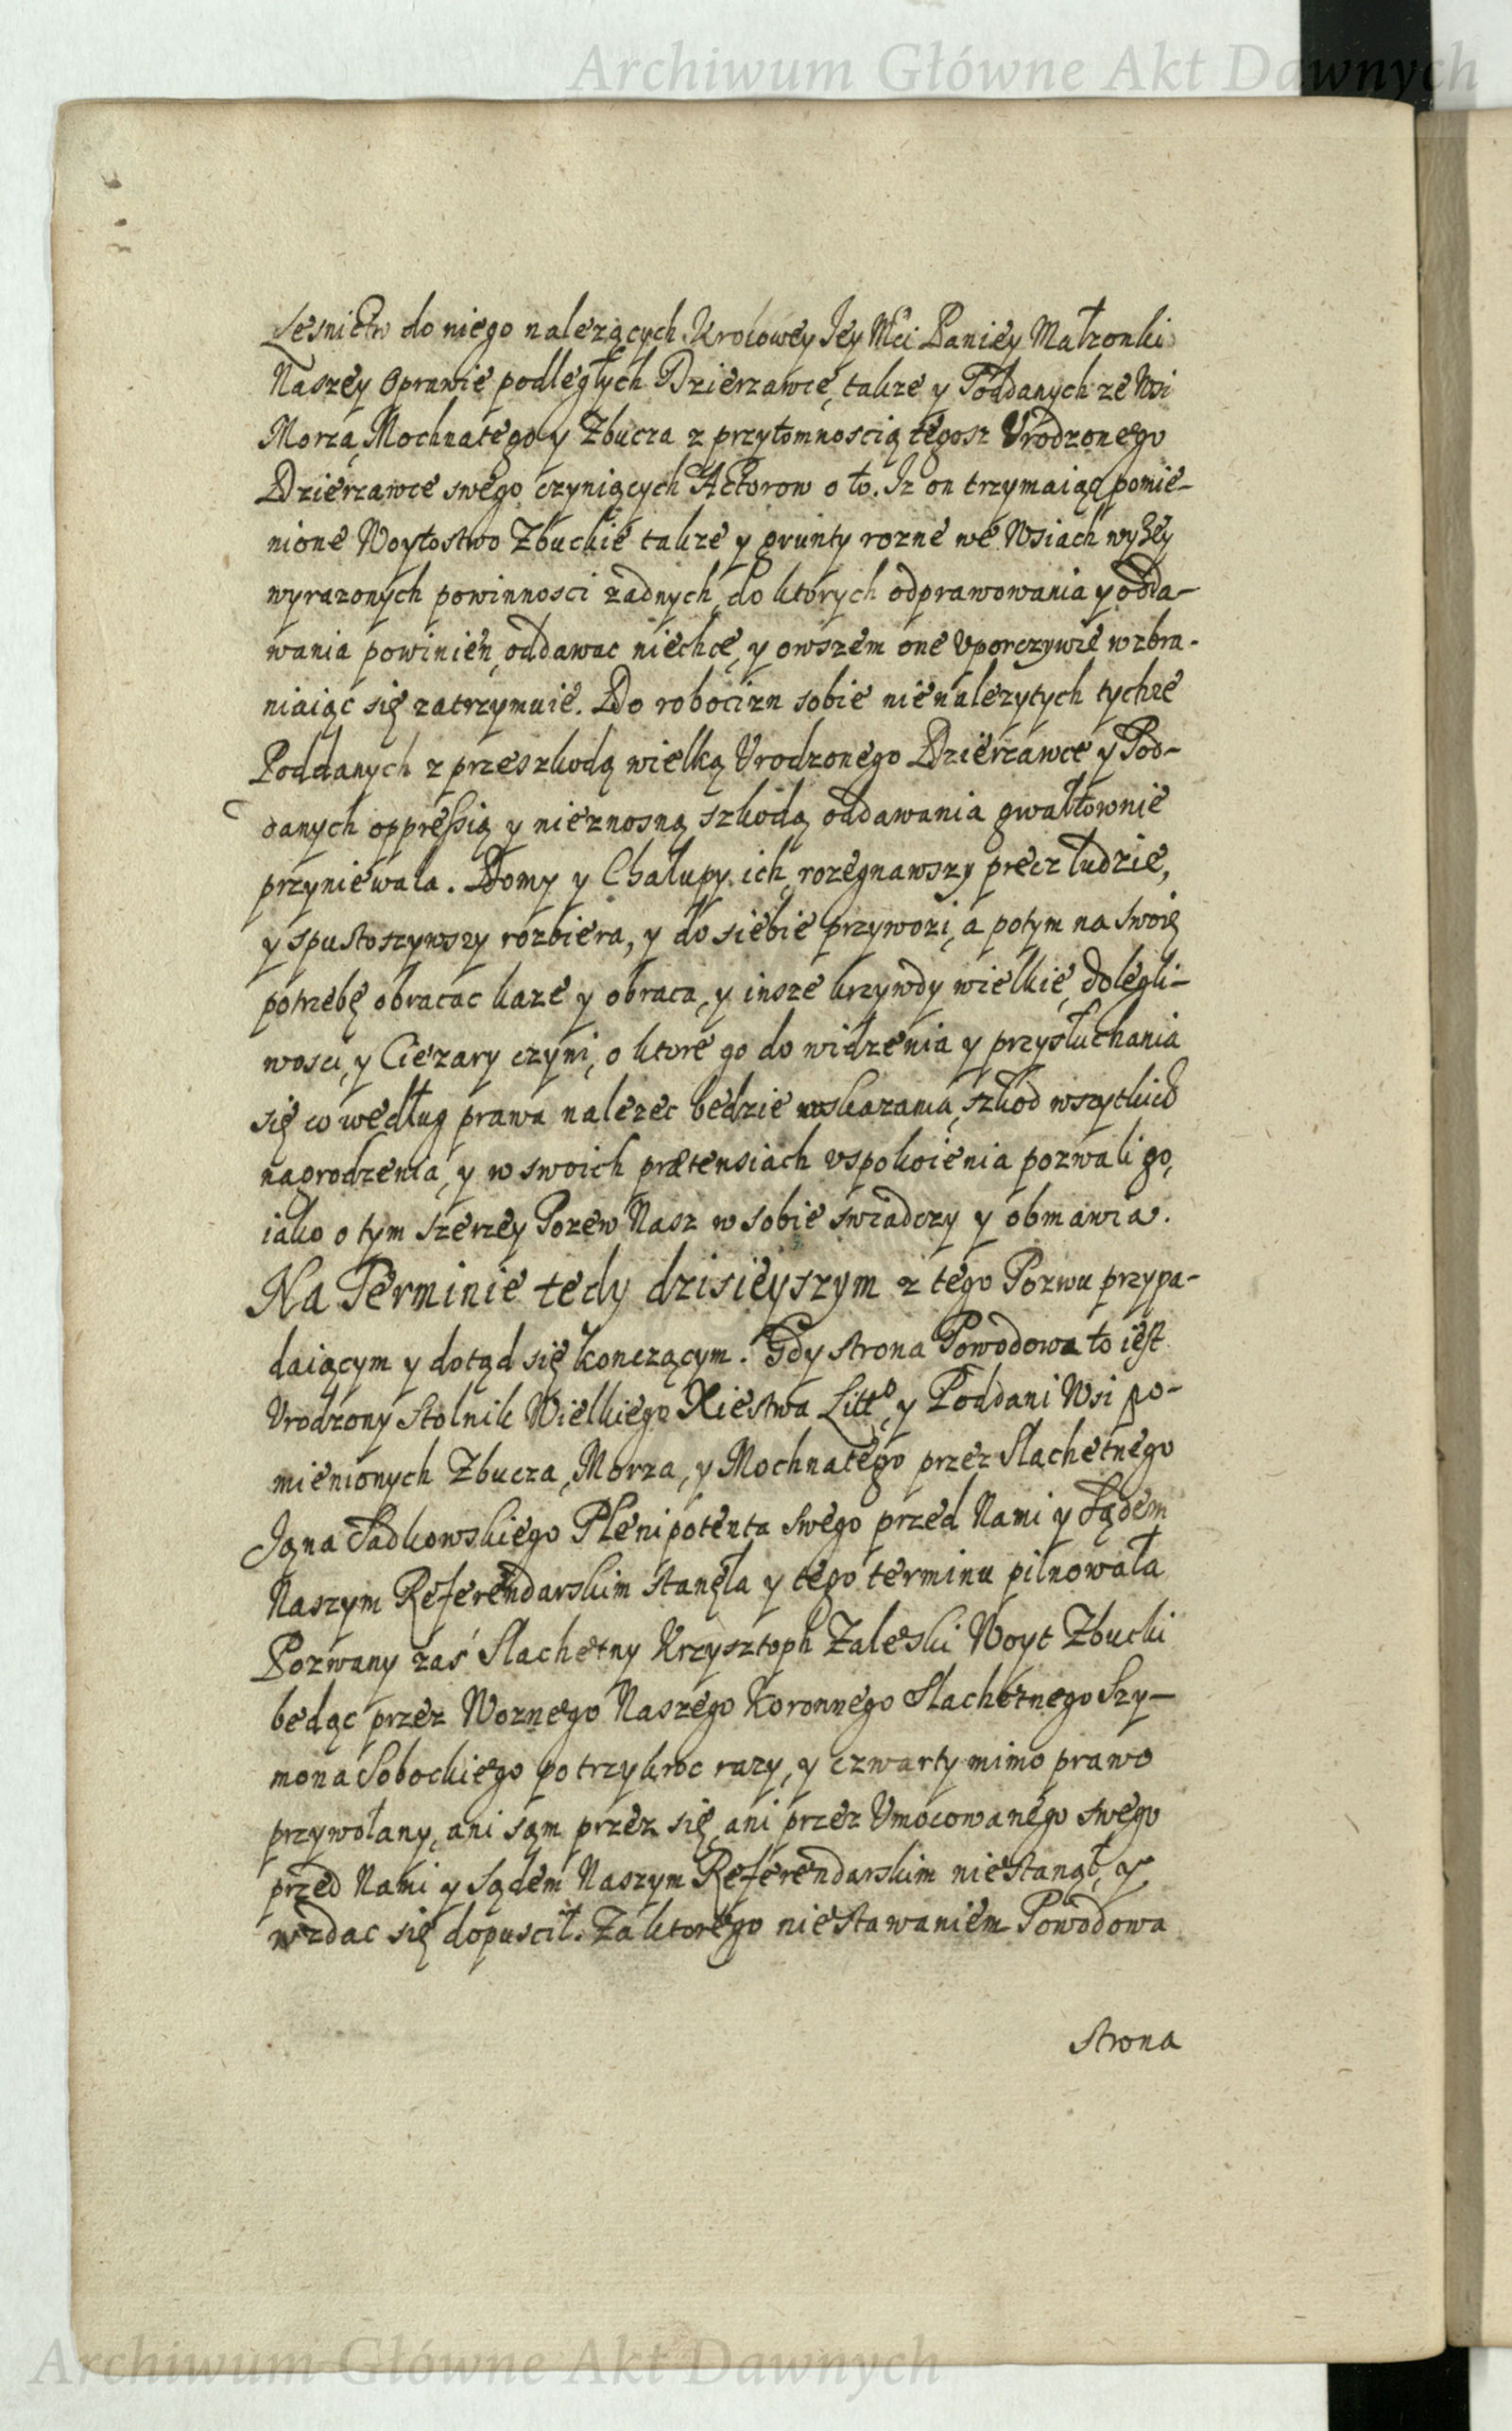 Archiwum Główne Akt Dawnych
Lesnictw do niego nalezących Krolowey Jey Mci Paniey Małzonki
Naszey Oprawie podległych Dzierzawce, takze y Poddanych ze Wsi
Morza, Mochnatego y Zbucza z przytomnoscią tegosz Vrodzonego
Dzierzawce swego czyniących Actorow o to. Iz on trzymaiąc pomie-
nione Woytostwo Zbuckie takze y grunty rozne we Wsiach wyzey
wyrazonych powinnosci zadnych, do ktorych odprawowania y odda-
wania powinien, oddawac niechce, y owszem one Vporczywie wzbra-
niaiąc się zatrzymuie. Do robocizn sobie nienalezytych tychze
Poddanych z przeszkodą wielką Vrodzonego Dzierzawce y Pod-
danych oppressią y nieznosną szkodą oddawania gwałtownie
przyniewala. Domy y Chalupy ich, rozegnawszy precz ludzie,
y spustoszywszy rozbiera, y do siebie przywozi, a potym na swoię
potrzebę obracac kaze y obraca, y insze krzywdy wielkie, dolegli-
wosci, y Ciezary czyni, o ktore go do widzenia y przysłuchania
się co według prawa nalezec będzie wskazania, szkod wszytkich
nagrodzenia, y w swoich prætensiach vspokoienia pozwali go,
iako o tym szerzey Pozew Nasz w sobie swiadczy y obmawia.
Na Terminie tedy dzisieyszym z tego Pozwu przypa-
daiącym y dotąd się konczącym. Gdy strona Powodowa to iest
Vrodzony Stolnik Wielkiego Xiestwa Litto, y Poddani Wsi po-
mienionych Zbucza, Morza, y Mochnatego przez Slachetnego
Jana Sadkowskiego Plenipotenta swego przed Nami y Sądem
Naszym Referendarskim stanęła y tego terminu pilnowała
Pozwany zaś Slachetny Krzysztoph Zaleski Woyt Zbucki
bedąc przez Woznego Naszego Koronnego Slachetnego Szy-
mona Sobockiego po trzykroc razy, y czwarty mimo prawo
przywołany, ani sąm przez się, ani przez Vmocowanego swego
przed Nami y Sądem Naszym Referendarskim niestanął, y
wzdac się dopuscił. Za ktorego niestawaniem Powodowa
strona
Archiwum Główne Akt Dawnych